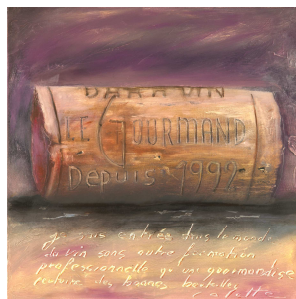 LE GOURMAND
Depuis 1992
je suis entrée dans le monde
du vin sans autre formation
professionnelle qu'une gourmandise
des bonnes bouteilles